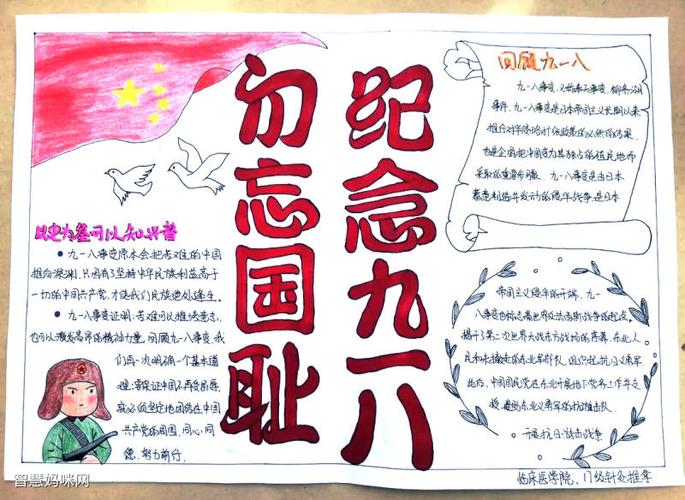 纪念九一八
勿忘国耻
回顾九一八
九一八事变,又称奉天事变、柳条湖
事件。九一八事变是日本帝国主义长期以来
推行对华侵略扩张政策的必然结果,
也是企图把中国变为其独占的殖民地而
采取的重要步骤。九一八事变是由日本
蓄意制造并发动的侵华战争,是日本
帝国主义侵华的开端。九一
八事变也标志着世界反法西斯战争的起点,
揭开了第二次世界大战东方战场的序幕。东北人
民和未撤走的东北军部队,组织起抗日义勇军
此后,中国国民党在东北开展地下党务工作与支
援,东北义勇军的对抗狙击队。
开展抗日游击战争
以史为鉴可以知兴替
● 九一八事变原本会把苦难的中国
推向深渊,只因有了坚持中华民族利益高于
一切的中国共产党,才使我们民族绝处逢生。
● 九一八事变证明:苦难可以摧残意志,
也可以激发高昂的精神力量。回顾九一八事变,我
们再一次明确一个基本道
理:要保证中国不再受屈辱,
就必须坚定地团结在中国
共产党的周围,同心同
德,努力前行.
临床医学院、17级针灸推拿
智慧妈咪网